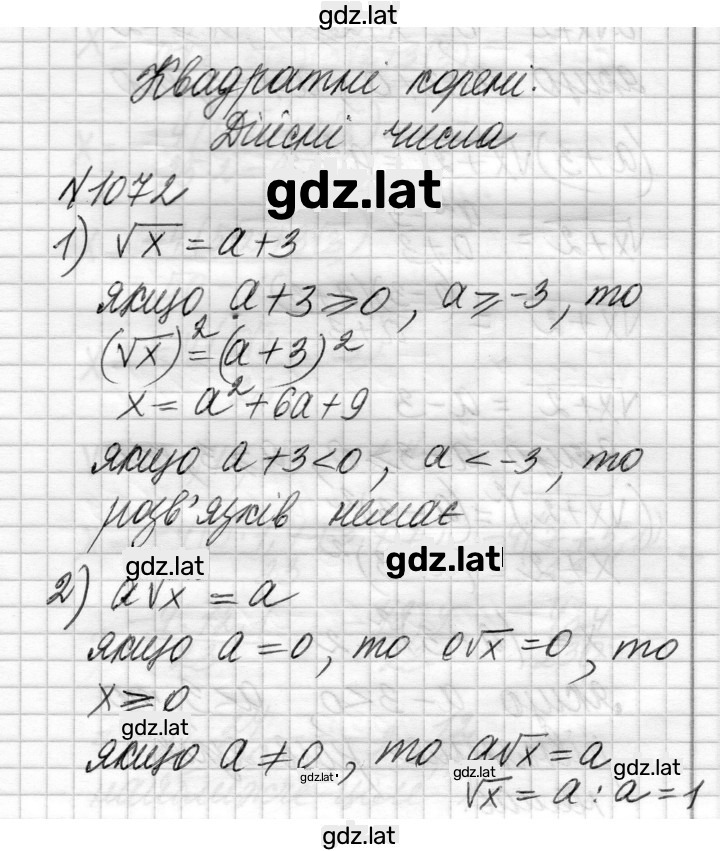 gdz.lat
Квадратні корені.
Дійсні числа
№1072
gdz.lat
1) √x = a+3
якщо a+3⩾0, a⩾-3, то
(√x)² = (a+3)²
x = a²+6a+9
якщо a+3<0, a<-3, то
розв'язків немає
gdz.lat
gdz.lat
2) a√x = a
якщо a=0, то 0√x=0, то
x⩾0
gdz.lat
якщо a≠0, то a√x=a
gdz.lat
gdz.lat
gdz.lat
√x = a : a = 1
gdz.lat